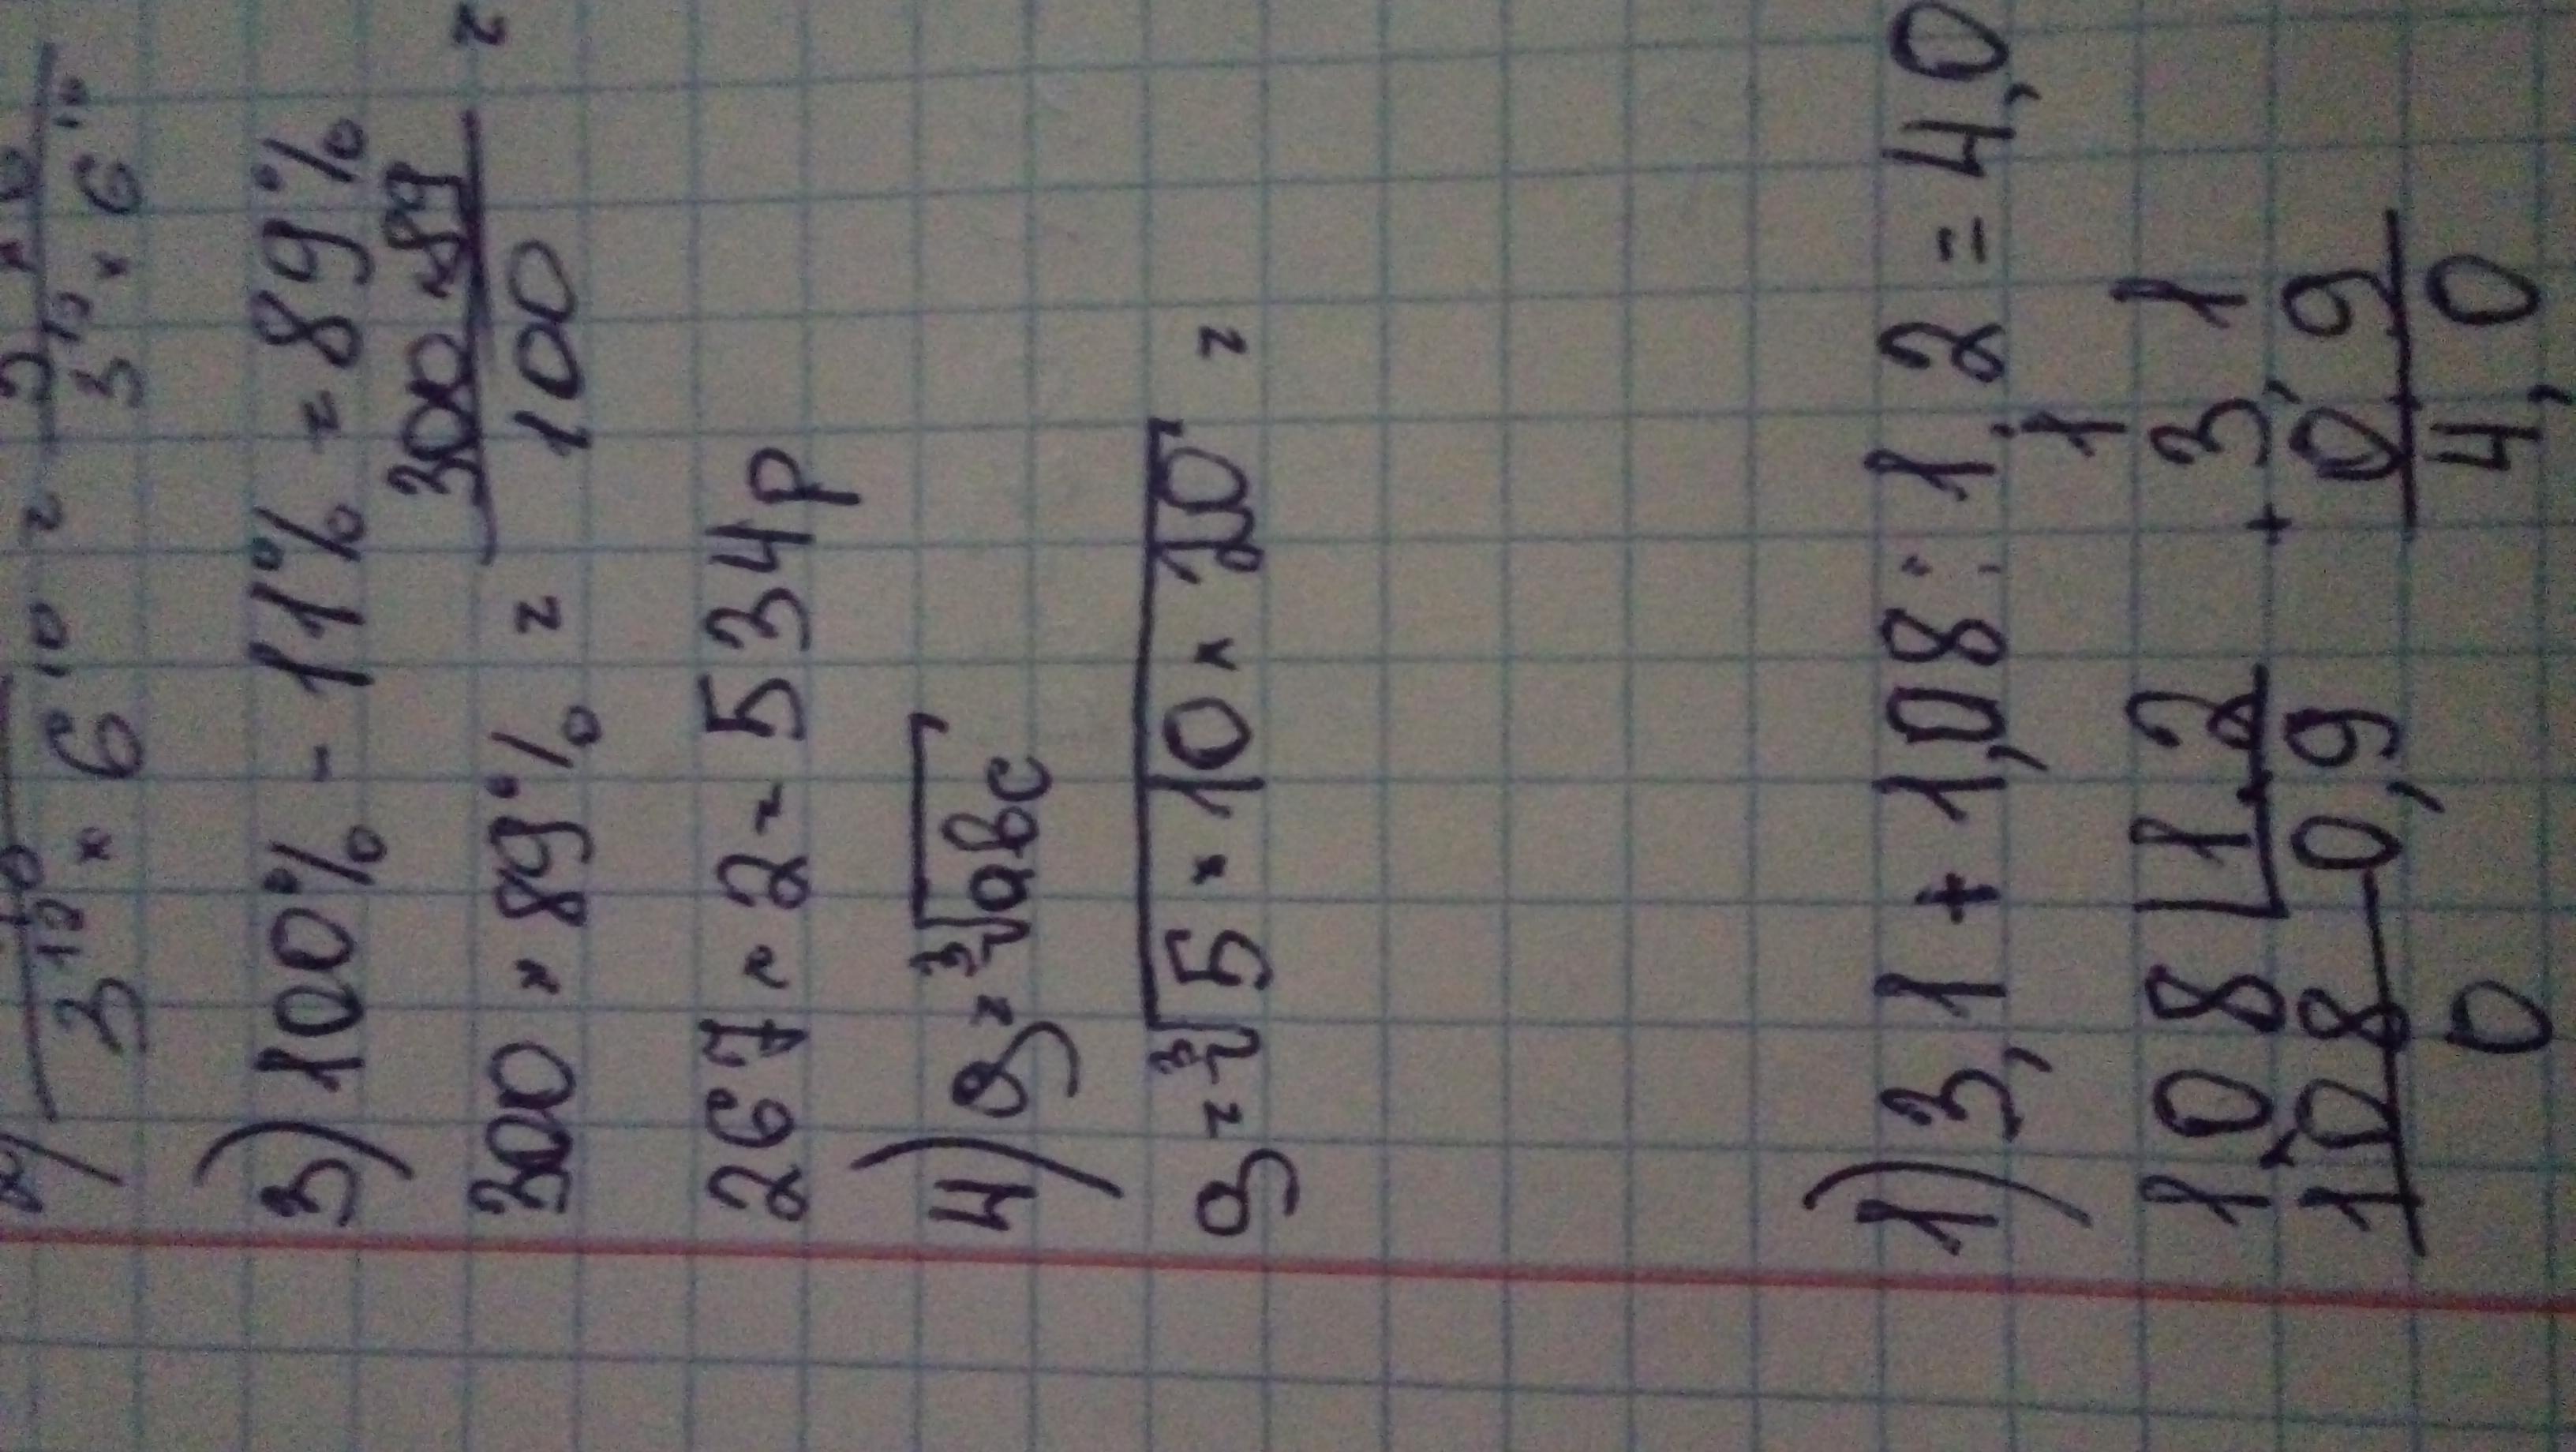 3¹⁰ × 6¹⁰ = 3¹⁰ × 6¹⁰
3) 100% - 11% = 89%
300 × 89% = 300 × 89 / 100 =
267 × 2 = 534 р
4) g = ³√abc
g = ³√5 × 10 × 20 =
1) 3,1 + 1,08 : 1,2 = 4,0
1
1,08 1,2 3,1
108 0,9 + 0,9
0 4,0